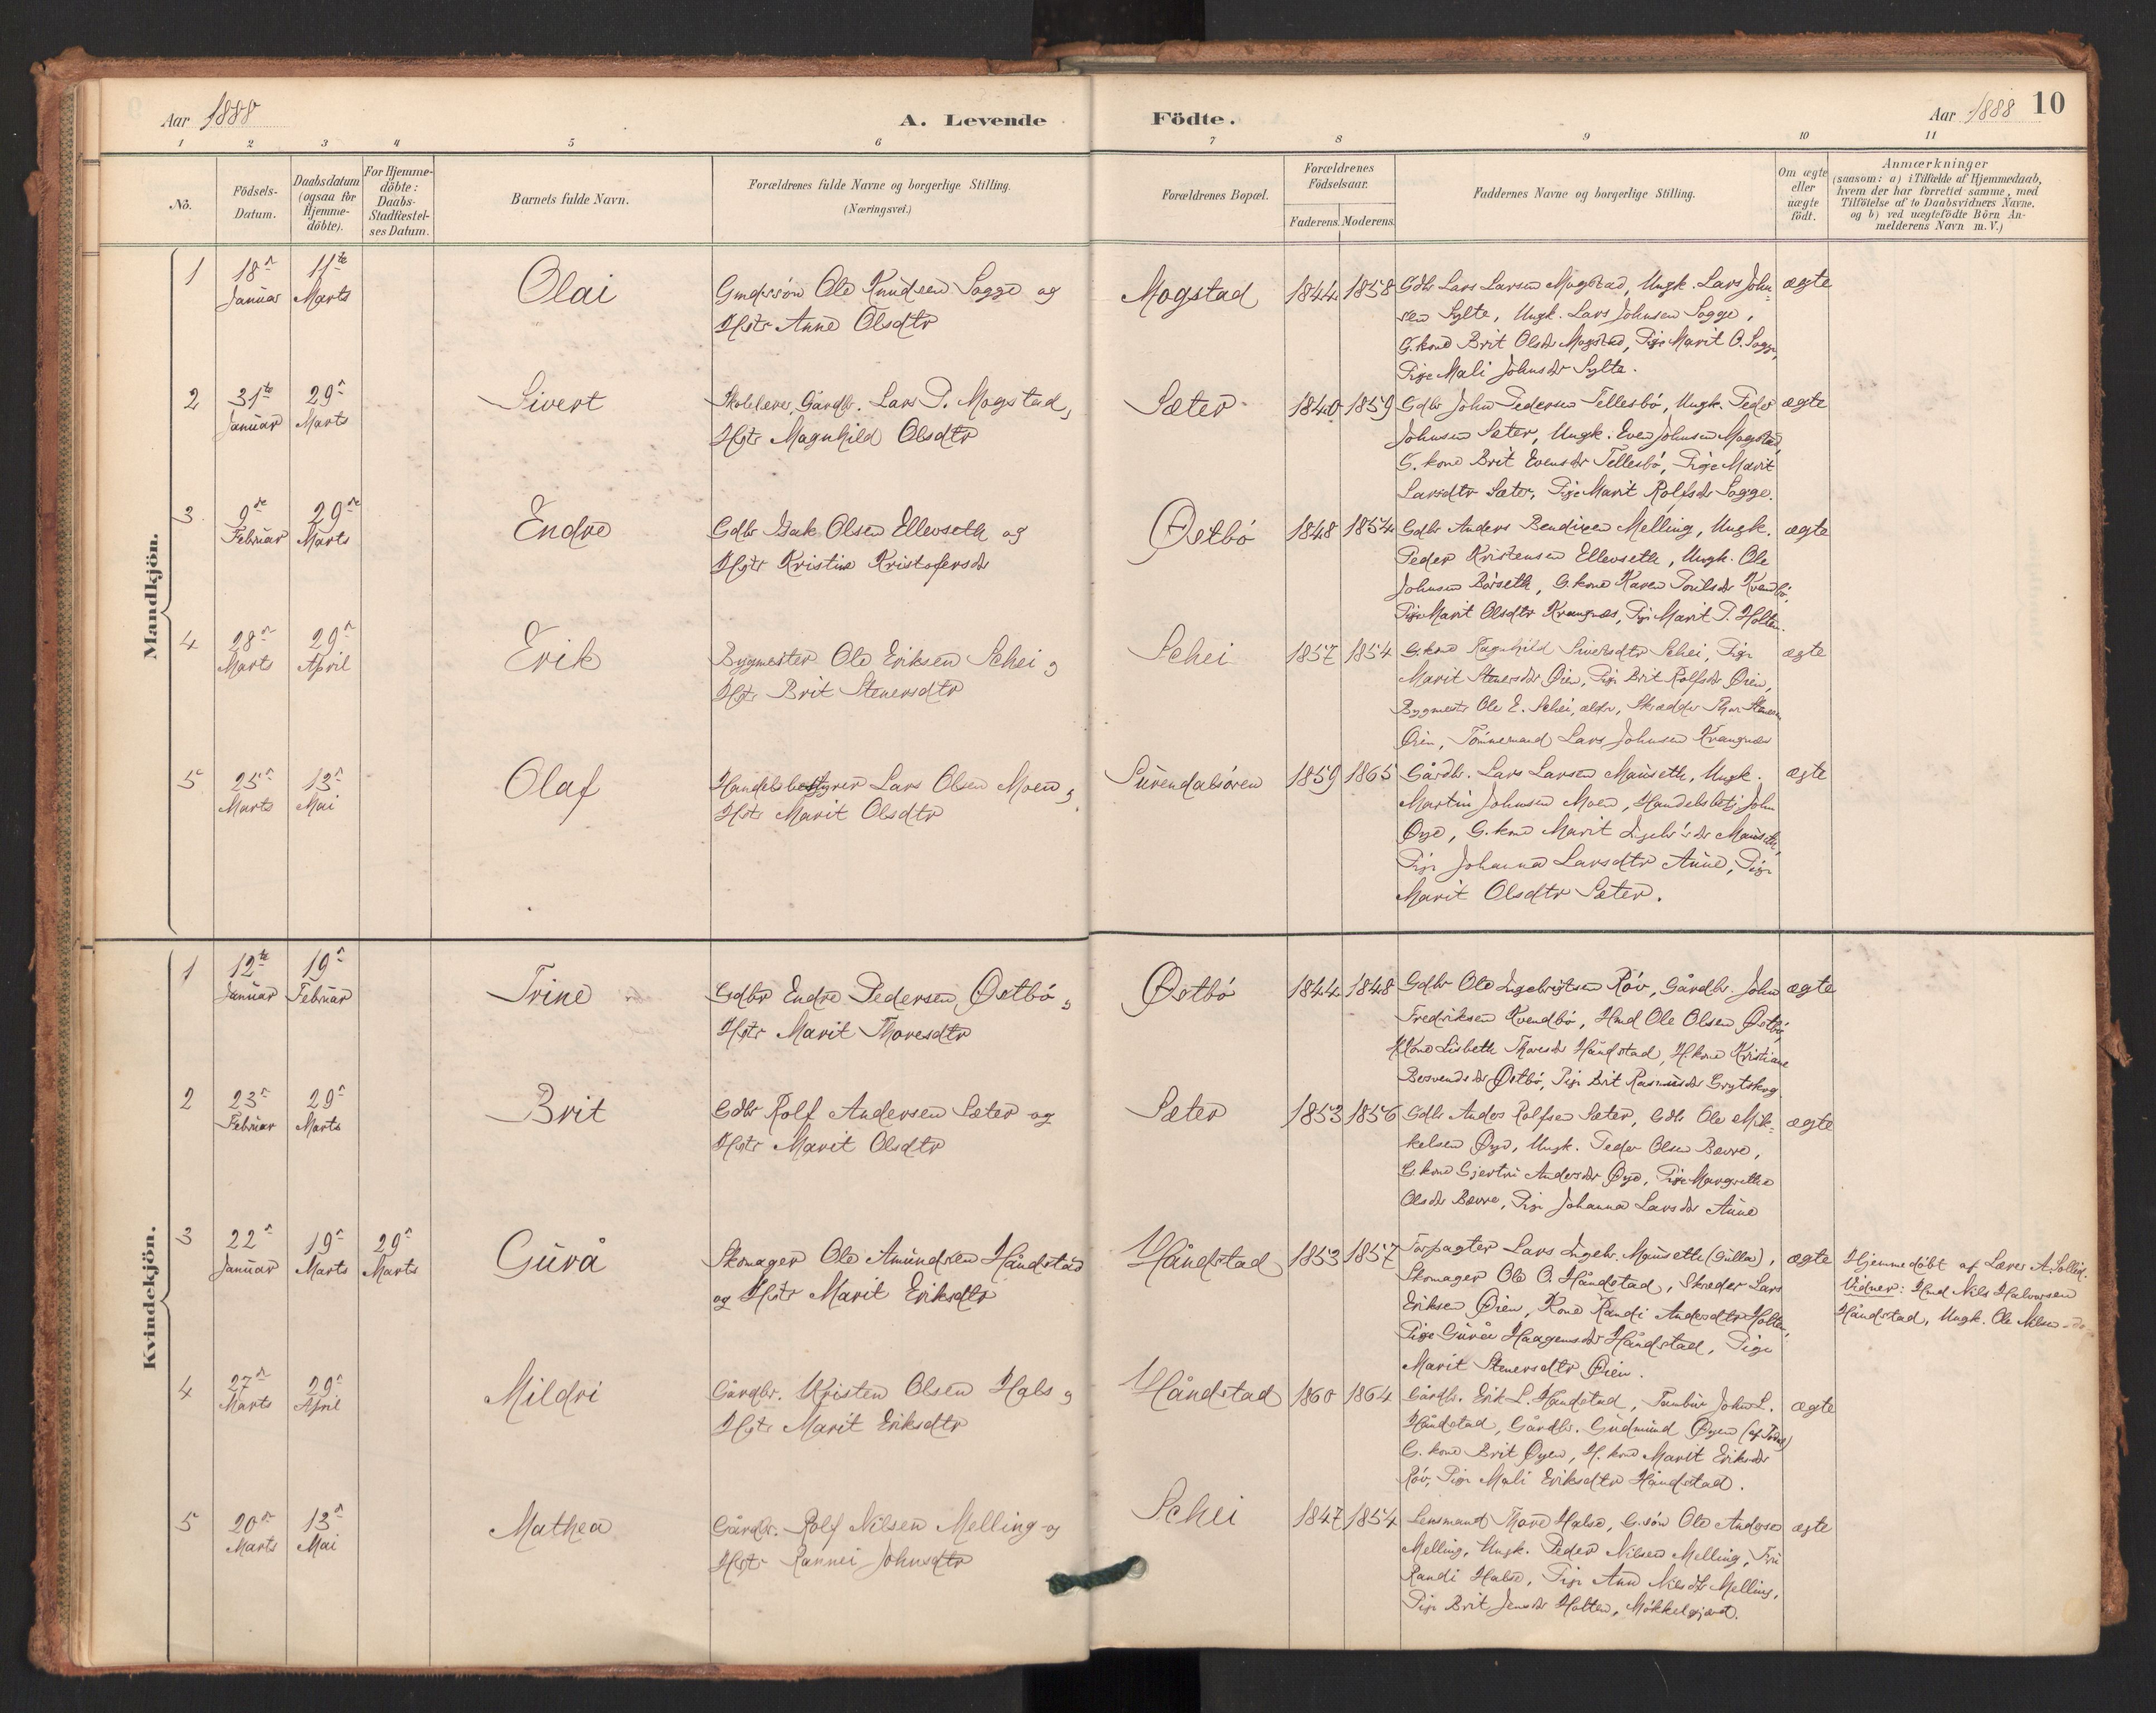 Aar 1888
A. Levende
Födte.
Aar 1888
10
1 2 3 4 5 6 7 8 9 10 11
No.
Födsels-
Datum.
Daabsdatum
(ogsaa for
Hjemme-
döbte).
For Hjemme-
döbte:
Daabs-
Stadfæstel-
ses Datum.
Barnets fulde Navn.
Forældrenes fulde Navne og borgerlige Stilling.
(Næringsvei.)
Forældrenes Bopæl.
Forældrenes
Födselsaar.
Faderens. Moderens.
Faddernes Navne og borgerlige Stilling.
Om ægte
eller
uægte
födt.
Anmærkninger
(saasom: a) i Tilfælde af Hjemmedaab,
hvem der har forrettet samme, med
Tilföielse af to Daabsvidners Navne.
og b) ved uægtefödte Börn An-
melderens Navn m. V.)
Mandkjön.
1
18n
Januar
11te
Marts
Olai
Gmdssön Ole Knudsen Sogge og
Hstr Anne Olsdtr
Mogstad
1844
1858
Gdbr Lars Larsen Mogstad, Ungk. Lars John-
sen Sylte, Ungk. Lars Johnsen Sogge,
G.kone Brit Olsdr Mogstad, Pige Marit O. Sogge,
Pige Mali Johnsdr Sylte.
ægte
2
31te
Januar
29n
Marts
Sivert
Skolelærer, Gårdbr. Lars P. Mogstad,
Hstr Magnhild Olsdtr
Sæter
1840
1859
Gdbr John Pedersen Tellesbö, Ungk. Peder
Johnsen Sæter, Ungk. Even Johnsen Mogstad,
G.kone Brit Evensdr Tellesbö, Pige Marit
Larsdtr Sæter, Pige Marit Rolfsdr Sogge.
ægte
3
9de
Februar
29de
Marts
Endre
Gdbr Isak Olsen Ellevseth og
Hstr Kristine Kristofersdr
Östbö
1848
1854
Gdbr Anders Bendixen Melling, Ungk.
Peder Kristensen Ellevseth, Ungk. Ole
Johnsen Börseth, G.kone Karen Poulsdr Kvendbö,
Pige Marit Olsdtr Krangnæs, Pige Marit P. Holten.
ægte
4
28n
Marts
29n
April
Erik
Bygmester Ole Eriksen Schei og
Hstr Brit Stenersdtr
Schei
1857
1854
G.kone Ragnhild Siversdtr Schei, Pige
Marit Stenersdr Öien, Pige Brit Rolfsdr Öien,
Bygmester Ole E. Schei, ældre, Skrædder Thor Stenersen
Öien, Tömmermand Lars Johnsen Krangnæs
ægte
5
25n
Marts
13n
Mai
Olaf
Handelsbestyrer Lars Olsen Moen og
Hstr Marit Olsdtr
Surendalsören
1859
1865
Gårdbr. Lars Larsen Mauseth, Ungk.
Martin Johnsen Moen, Handelsbetj. John
Öye, G.kone Marit Ingebr'sdr Mauseth,
Pige Johanna Larsdtr Aune, Pige
Marit Olsdtr Sæter.
ægte
Kvindekjön.
1
12te
Januar
19n
Februar
Trine
Gdbr Endre Pedersen Östbö og
Hstr Marit Thoresdtr
Östbö
1844
1848
Gdbr Ole Ingebrigtsen Röv, Gårdbr. John
Fredriksen Kvendbö, Hmd Ole Olsen Östbö,
H.kone Lisbeth Thoresdr Håndstad, H.kone Kristiane
Östbö, Pige Brit Rasmusdr Grytskog
ægte
2
23n
Februar
29n
Marts
Brit
Gdbr Rolf Andersen Sæter og
Hstr Marit Olsdtr
Sæter
1853
1856
Gdbr Anders Rolfsen Sæter, Gdbr Ole Mik-
kelsen Öye, Ungk. Peder Olsen Bævre,
G.kone Gjertru Andersdr Öye, Pige Margrethe
Olsdr Bævre, Pige Johanna Larsdr Aune
ægte
3
22n
Januar
19n
Marts
29n
Marts
Gurå
Skomager Ole Amundsen Håndstad
og Hstr Marit Eriksdtr
Håndstad
1853
1857
Forpagter Lars Ingebr. Mauseth (Gulla),
Skomager Ole O. Håndstad, Skræder Lars
Eriksen Öien, Kone Randi Andersdtr Holten,
Pige Gurå Haagensdr Håndstad, Pige
Marit Stenersdtr Öien.
ægte
Hjemmedöbt af Lærer A. Sollid.
Vidner: Hmd Nils Halvorsen
Håndstad, Ungk. Ole Nilsen do
4
27n
Marts
29n
April
Mildri
Gårdbr. Kristen Olsen Hals og
Hstr Marit Eriksdtr
Håndstad
1860
1864
Gårdbr. Erik L. Håndstad, Tambur John L.
Håndstad, Gårdbr. Gudmund Öyen
G.kone Brit Öyen, H.kone Marit Eriksdr
Röv, Pige Mali Eriksdtr Håndstad.
ægte
5
20n
Marts
13n
Mai
Mathea
Gårdbr. Rolf Nilsen Melling og
Hstr Rannei Johnsdtr
Schei
1847
1854
Lensmand Thore Halse, G.sön Ole Andersen
Melling, Ungk. Peder Nilsen Melling, Fru
Randi Halse, Pige Ann Nilsdr Melling,
Pige Brit Jensdr Holten, Mökkelgjerd.
ægte